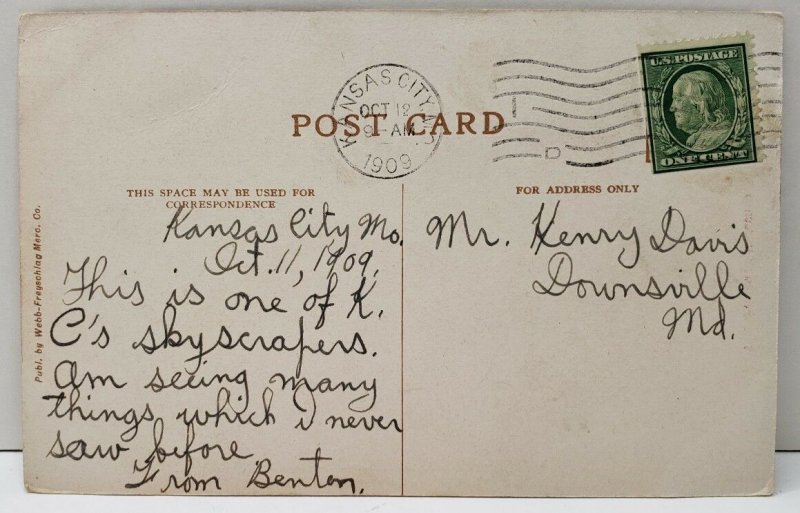 KANSAS CITY, MO.
OCT 12
9 - AM
1909
U.S. POSTAGE
ONE CENT
D
POST CARD
THIS SPACE MAY BE USED FOR
CORRESPONDENCE
FOR ADDRESS ONLY
Publ. by Webb-Freyschlag Merc. Co.
Kansas City Mo.
Oct. 11, 1909.
This is one of K.
C's skyscrapers.
Am seeing many
things which i never
saw before.
From Benton.
Mr. Henry Davis
Downsville
Md.